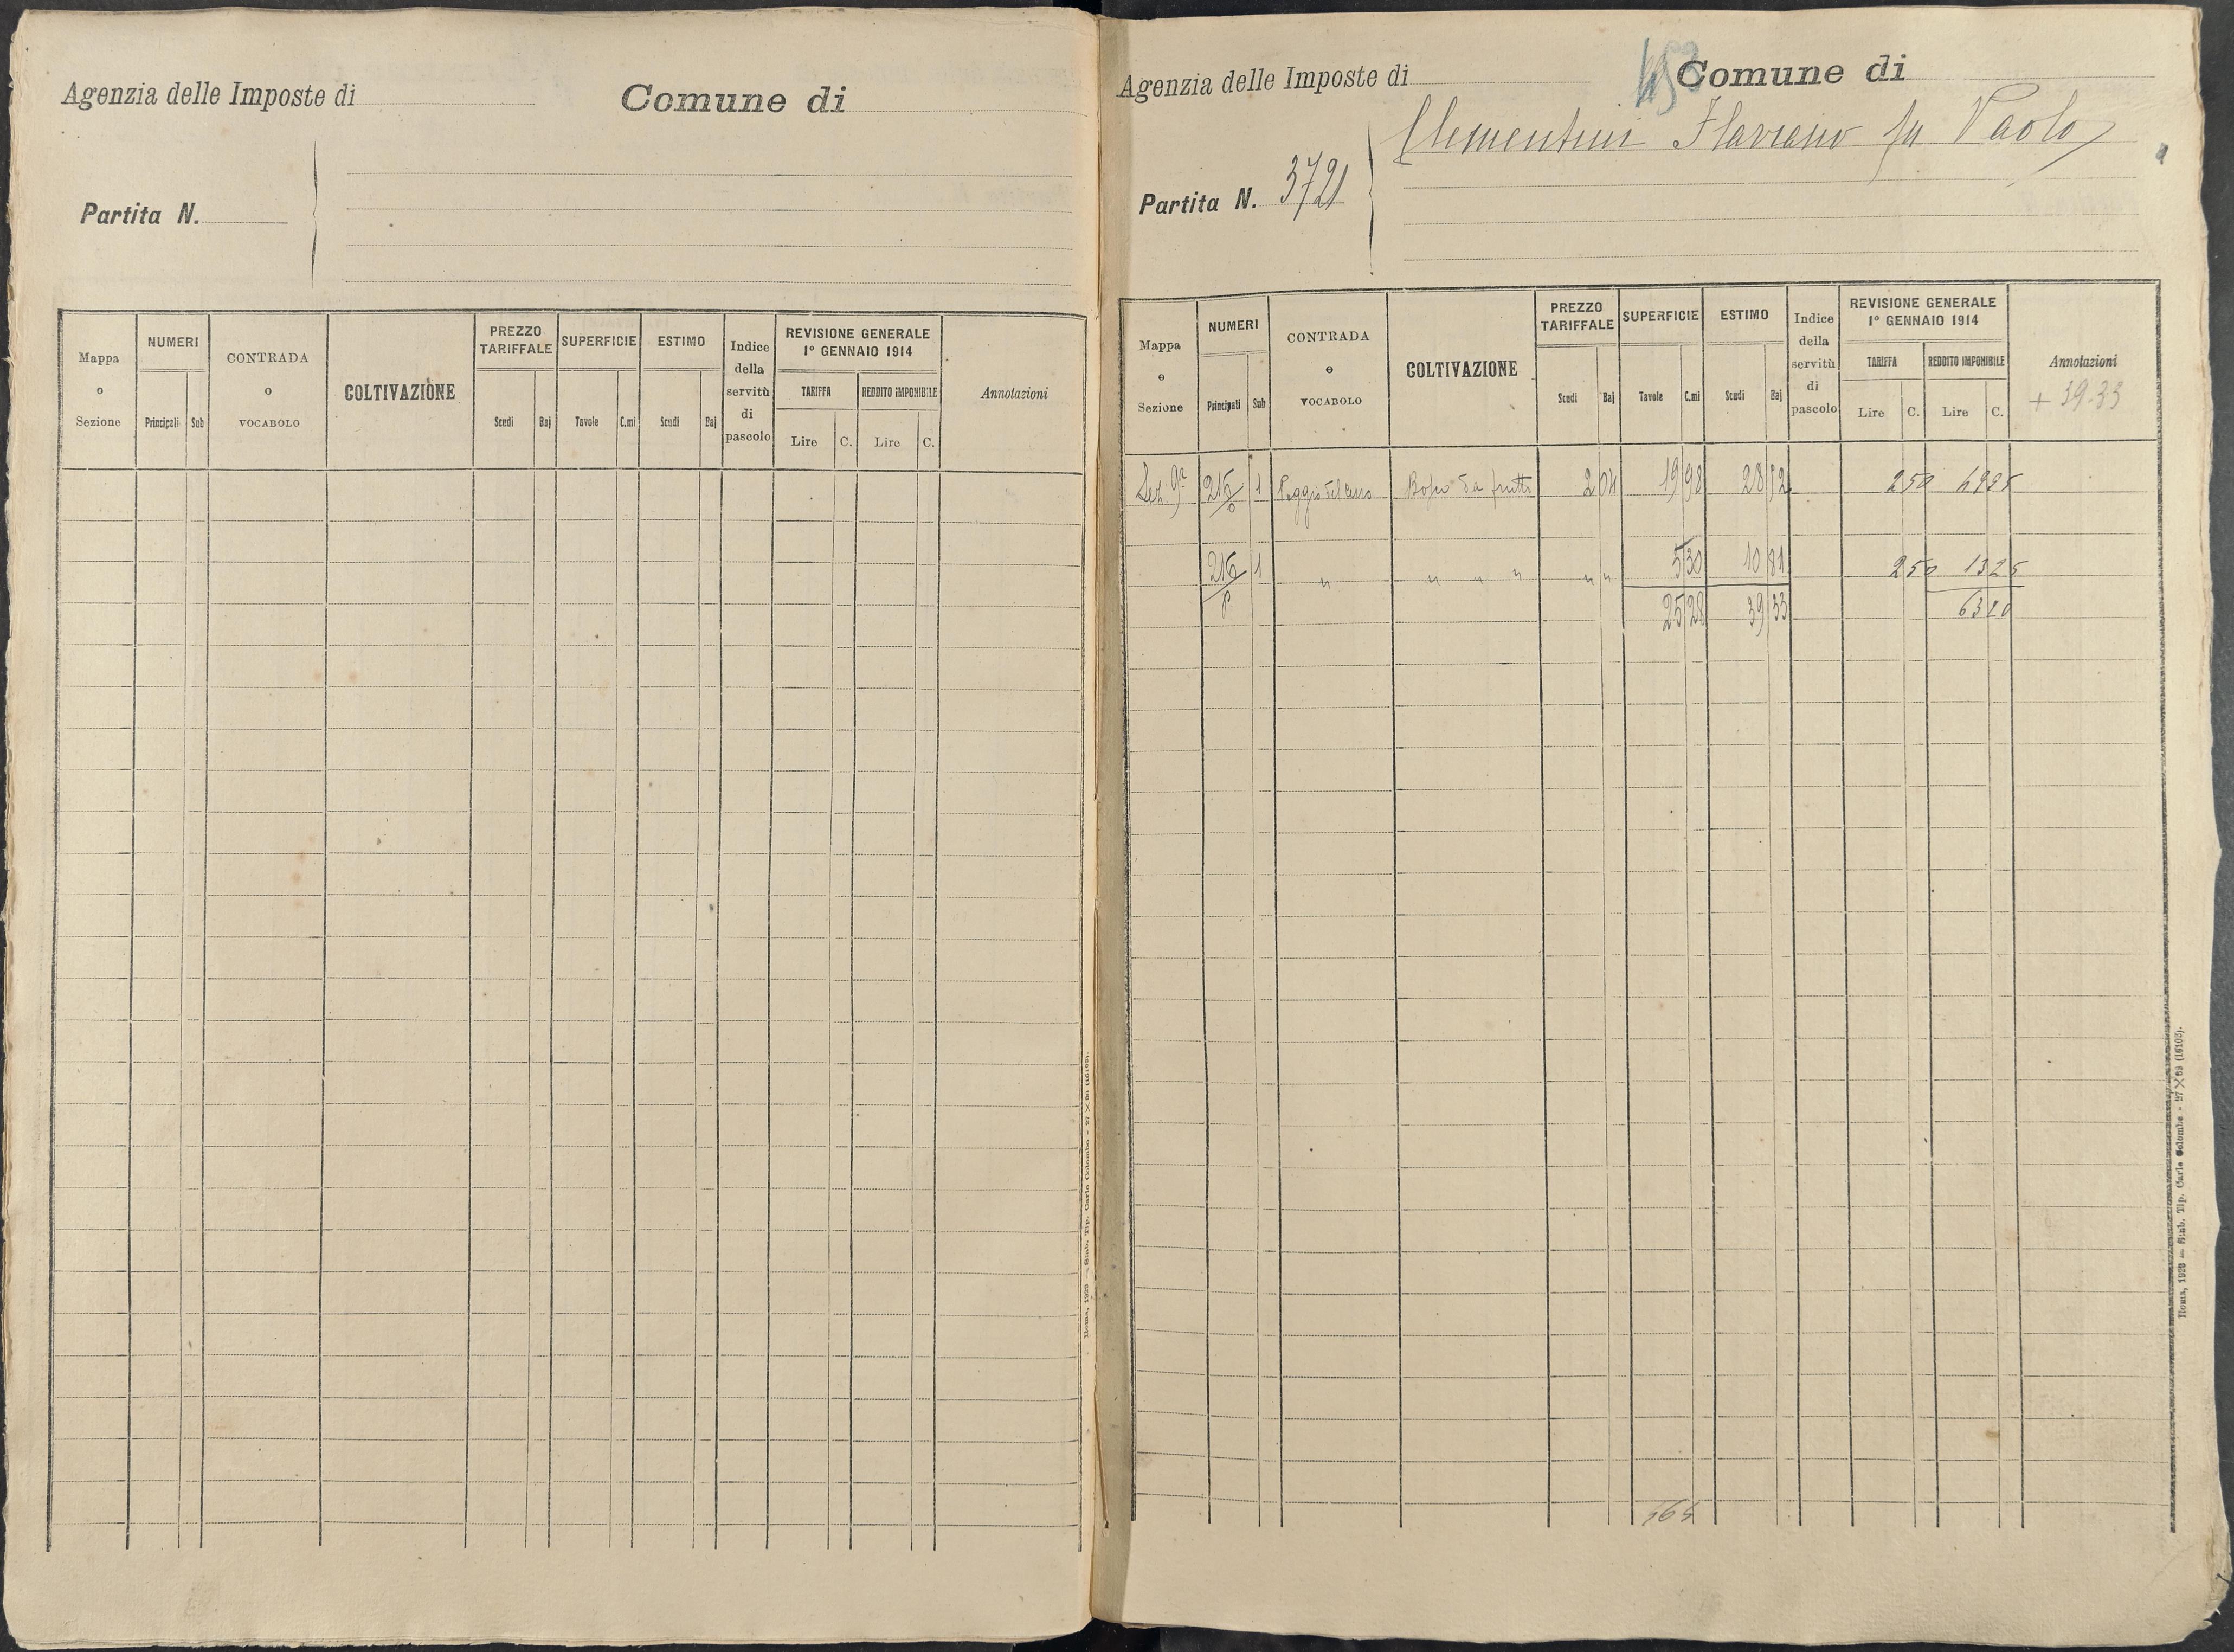 Agenzia delle Imposte di
Comune di
Partita N.
Mappa o Sezione
NUMERI
Principali Sub
CONTRADA o VOCABOLO
COLTIVAZIONE
PREZZO TARIFFALE
Scudi Baj
SUPERFICIE
Tavole C.mi
ESTIMO
Scudi Baj
Indice della servitù di pascolo
REVISIONE GENERALE
1° GENNAIO 1914
TARIFFA
Lire C.
REDDITO IMPONIBILE
Lire C.
Annotazioni
Agenzia delle Imposte di
Comune di
Clementini Flaviano fu Paolo
Partita N. 3721
Mappa o Sezione
NUMERI
Principali Sub
CONTRADA o VOCABOLO
COLTIVAZIONE
PREZZO TARIFFALE
Scudi Baj
SUPERFICIE
Tavole C.mi
ESTIMO
Scudi Baj
Indice della servitù di pascolo
REVISIONE GENERALE
1° GENNAIO 1914
TARIFFA
Lire C.
REDDITO IMPONIBILE
Lire C.
Annotazioni
+ 39.33
Sez. 9ª 215 1 Poggio del Bosco da frutto 2 04 19 98 28 52 250 4995
216 1 " " " " " " 5 30 10 81 250 1325
25 28 39 33 6320
Roma, 1923 — Stab. Tip. Carlo Colombo - 27 ×